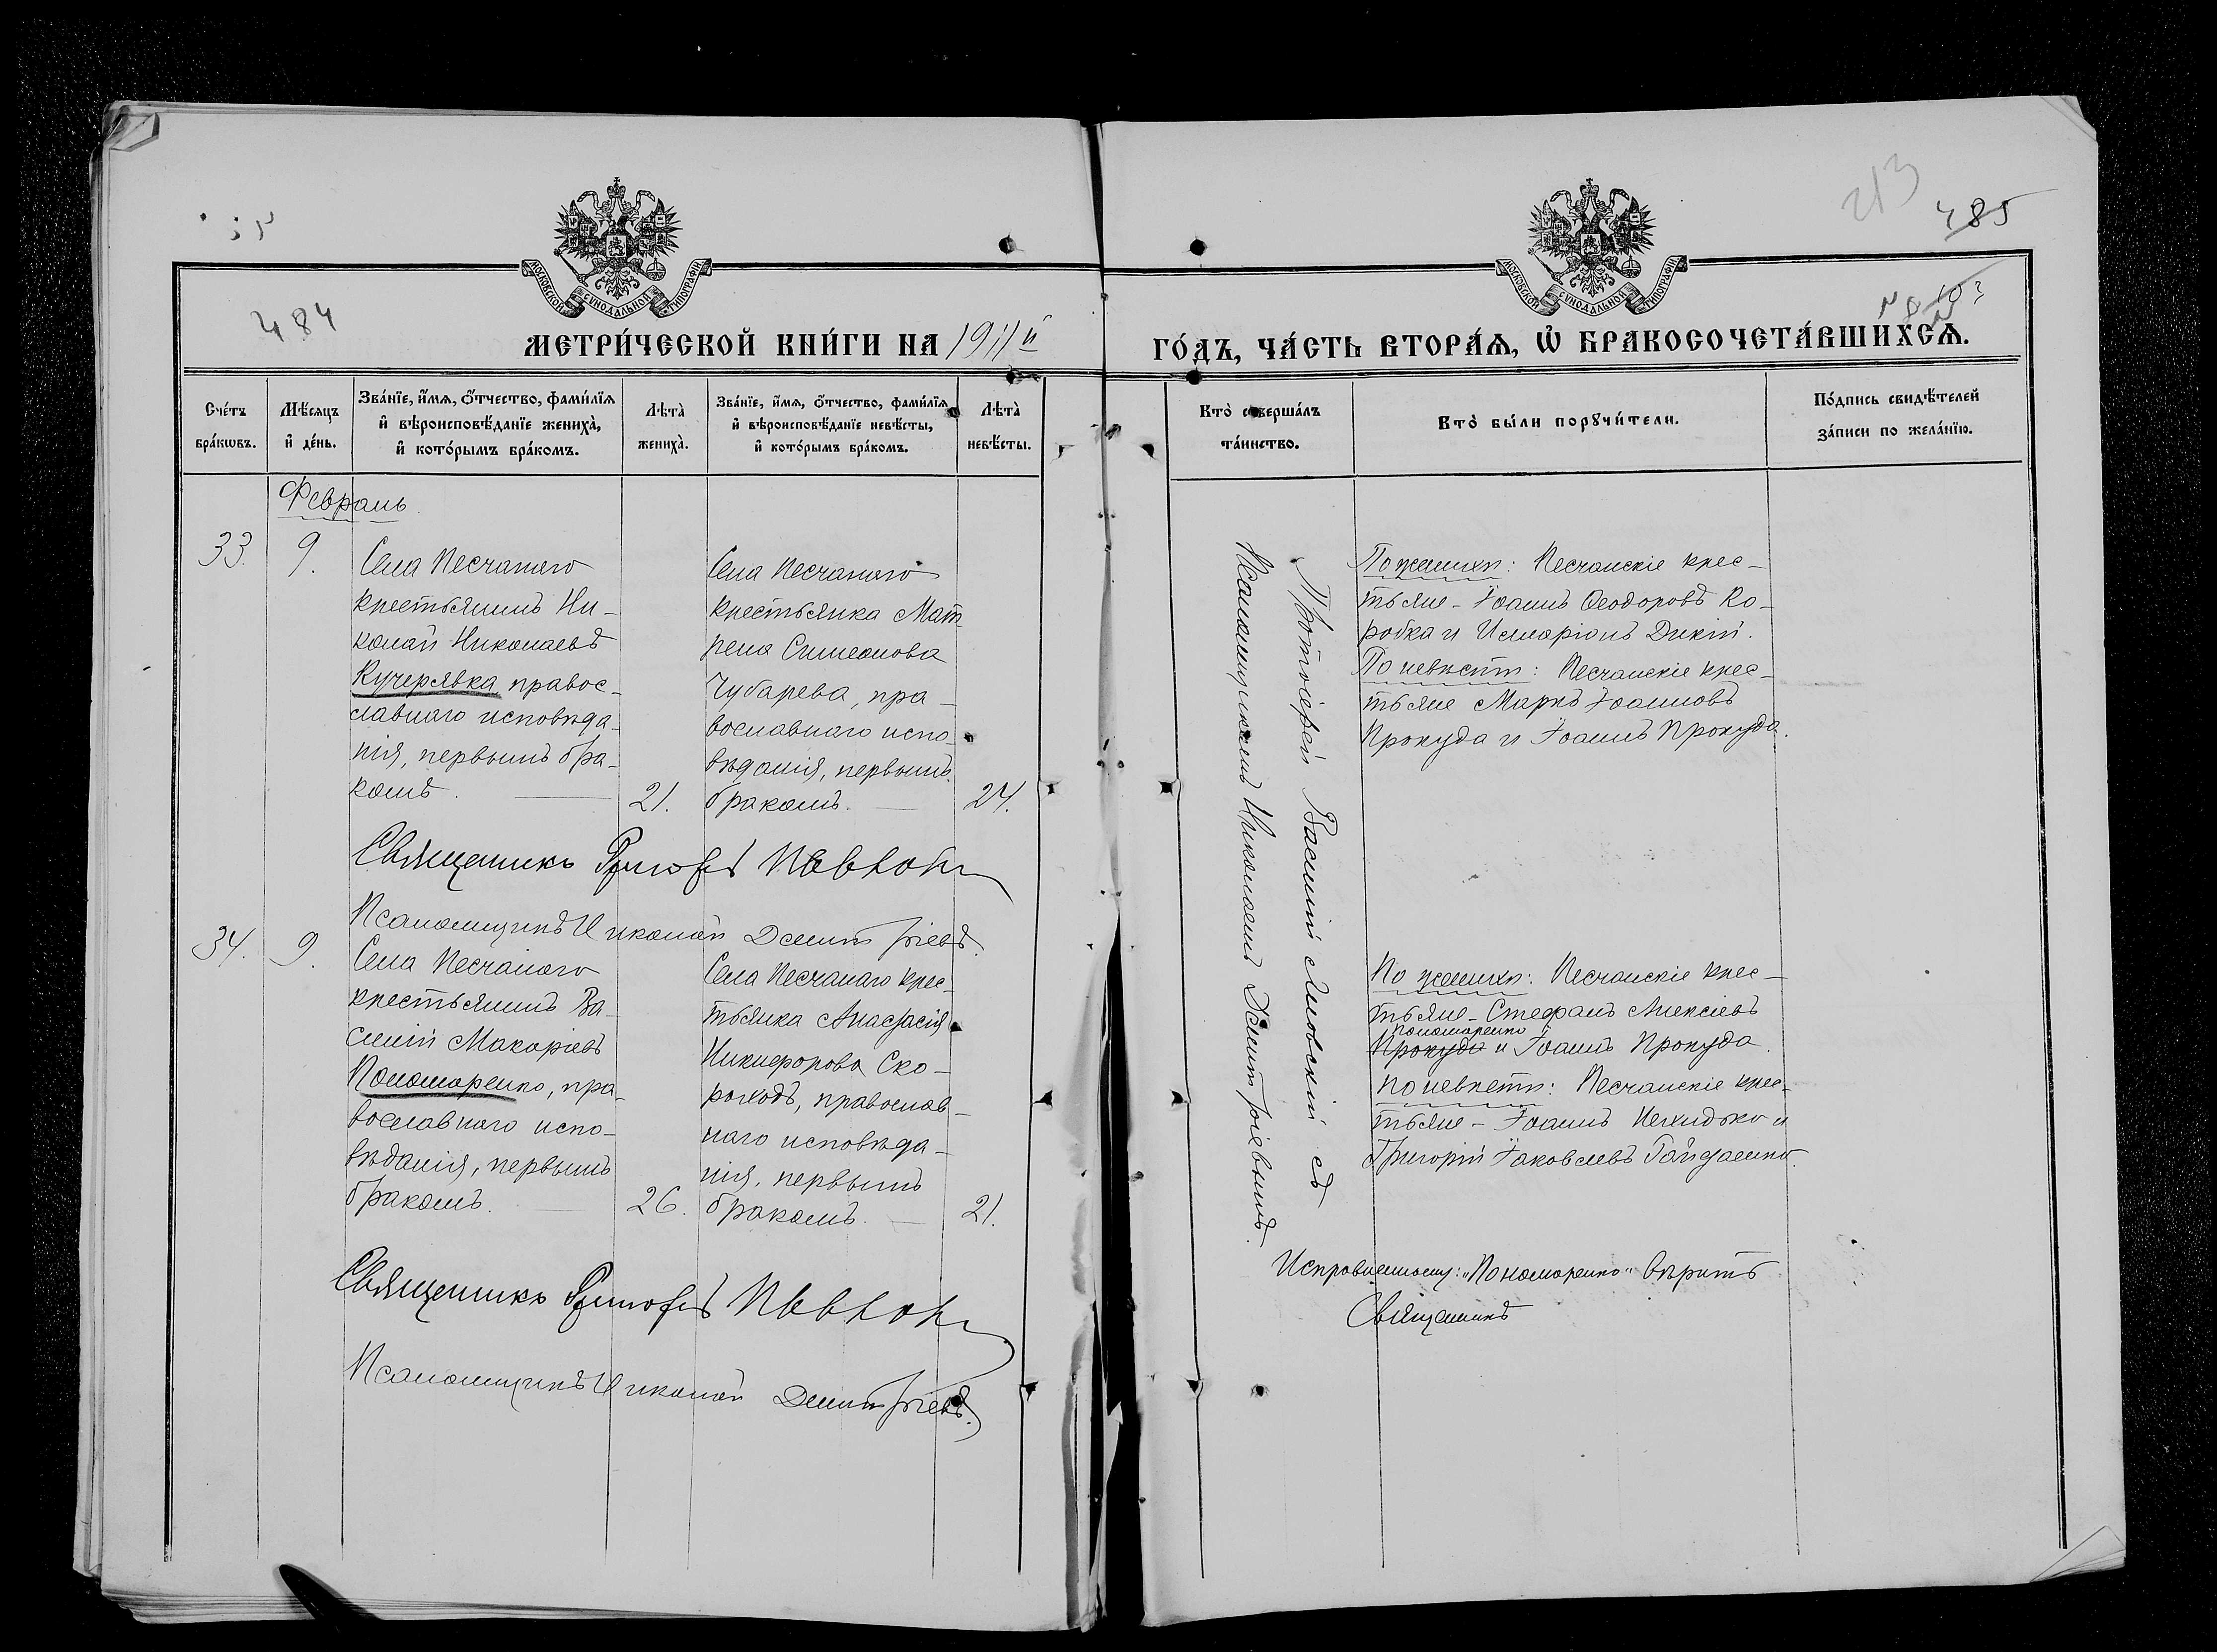 213
485
484
МОСКОВСКОЙ СУНОДАЛЬНОЙ ТИПОГРАФІИ
МОСКОВСКОЙ СУНОДАЛЬНОЙ ТИПОГРАФІИ
МЕТРИ́ЧЕСКОЙ КНИ́ГИ НА 1911й
ГО́ДЪ, ЧА́СТЬ ВТОРА́Ѧ, Ѽ БРАКОСОЧЕТА́ВШИХСѦ.
Сче́тъ бра́кѡвъ.
Мѣ́сяцъ и҆ де́нь.
Зва́нїе, и҆́мя, ѻ҆́тчество, фами́лїя
и҆ вѣроисповѣ́данїе жениха̀,
и҆ кото́рымъ бра́комъ.
Лѣта̀ жениха̀.
Зва́нїе, и҆́мя, ѻ҆́тчество, фами́лїя
и҆ вѣроисповѣ́данїе невѣ́сты,
и҆ кото́рымъ бра́комъ.
Лѣта̀ невѣ́сты.
Кто̀ соверша́лъ та́инство.
Кто̀ бы́ли порꙋчи́тели.
По́дпись свидѣ́телей за́писи по жела́нїю.
Февраль
33.
9.
Села Песчанаго
крестьянинъ Ни-
колай Николаевъ
Кучерявка правос-
славнаго исповѣда-
нія, первымъ бра-
комъ.
21.
Села Песчанаго
крестьянка Мат-
рена Симеонова
Чубарева, пра-
вославнаго испо-
вѣданія, первымъ
бракомъ.
24.
Протоіерей Василій Иловскій съ
Псаломщикомъ Николаемъ Димитріевымъ.
По женихѣ: Песчанскіе крес-
тьяне - Іоаннъ Ѳеодоровъ Ко-
робка и Иларіонъ Дикій.
По невѣстѣ: Песчанскіе крес-
тьяне Маркъ Іоанновъ
Прокуда и Іоаннъ Прокуда.
Священникъ Григорій
Псаломщикъ Николай Димитріевъ.
34.
9.
Села Песчанаго
крестьянинъ Ва-
силій Макаріевъ
Пономаренко, пра-
вославнаго испо-
вѣданія, первымъ
бракомъ.
26.
Села Песчанаго крес-
тьянка Анастасія
Никифорова Ско-
роходъ, православ-
наго исповѣда-
нія, первымъ
бракомъ.
21.
По женихѣ: Песчанскіе крес-
тьяне - Стефанъ Алексіевъ
Пономаренко
Прокуда и Іоаннъ Прокуда.
По невѣстѣ: Песчанскіе крес-
тьяне - Іоаннъ Нехидько и
Григорій Іаковлевъ Гайдаенко.
Священникъ Григорій
Псаломщикъ Николай Димитріевъ.
Исправленному: "Пономаренко" вѣрить
Священникъ